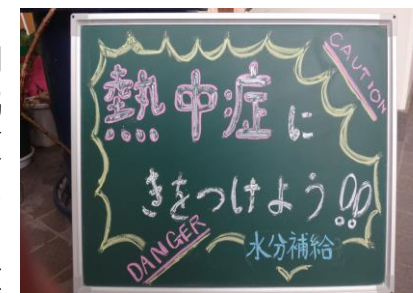 CAUTION
熱中症に
きをつけよう!!
DANGER
水分補給